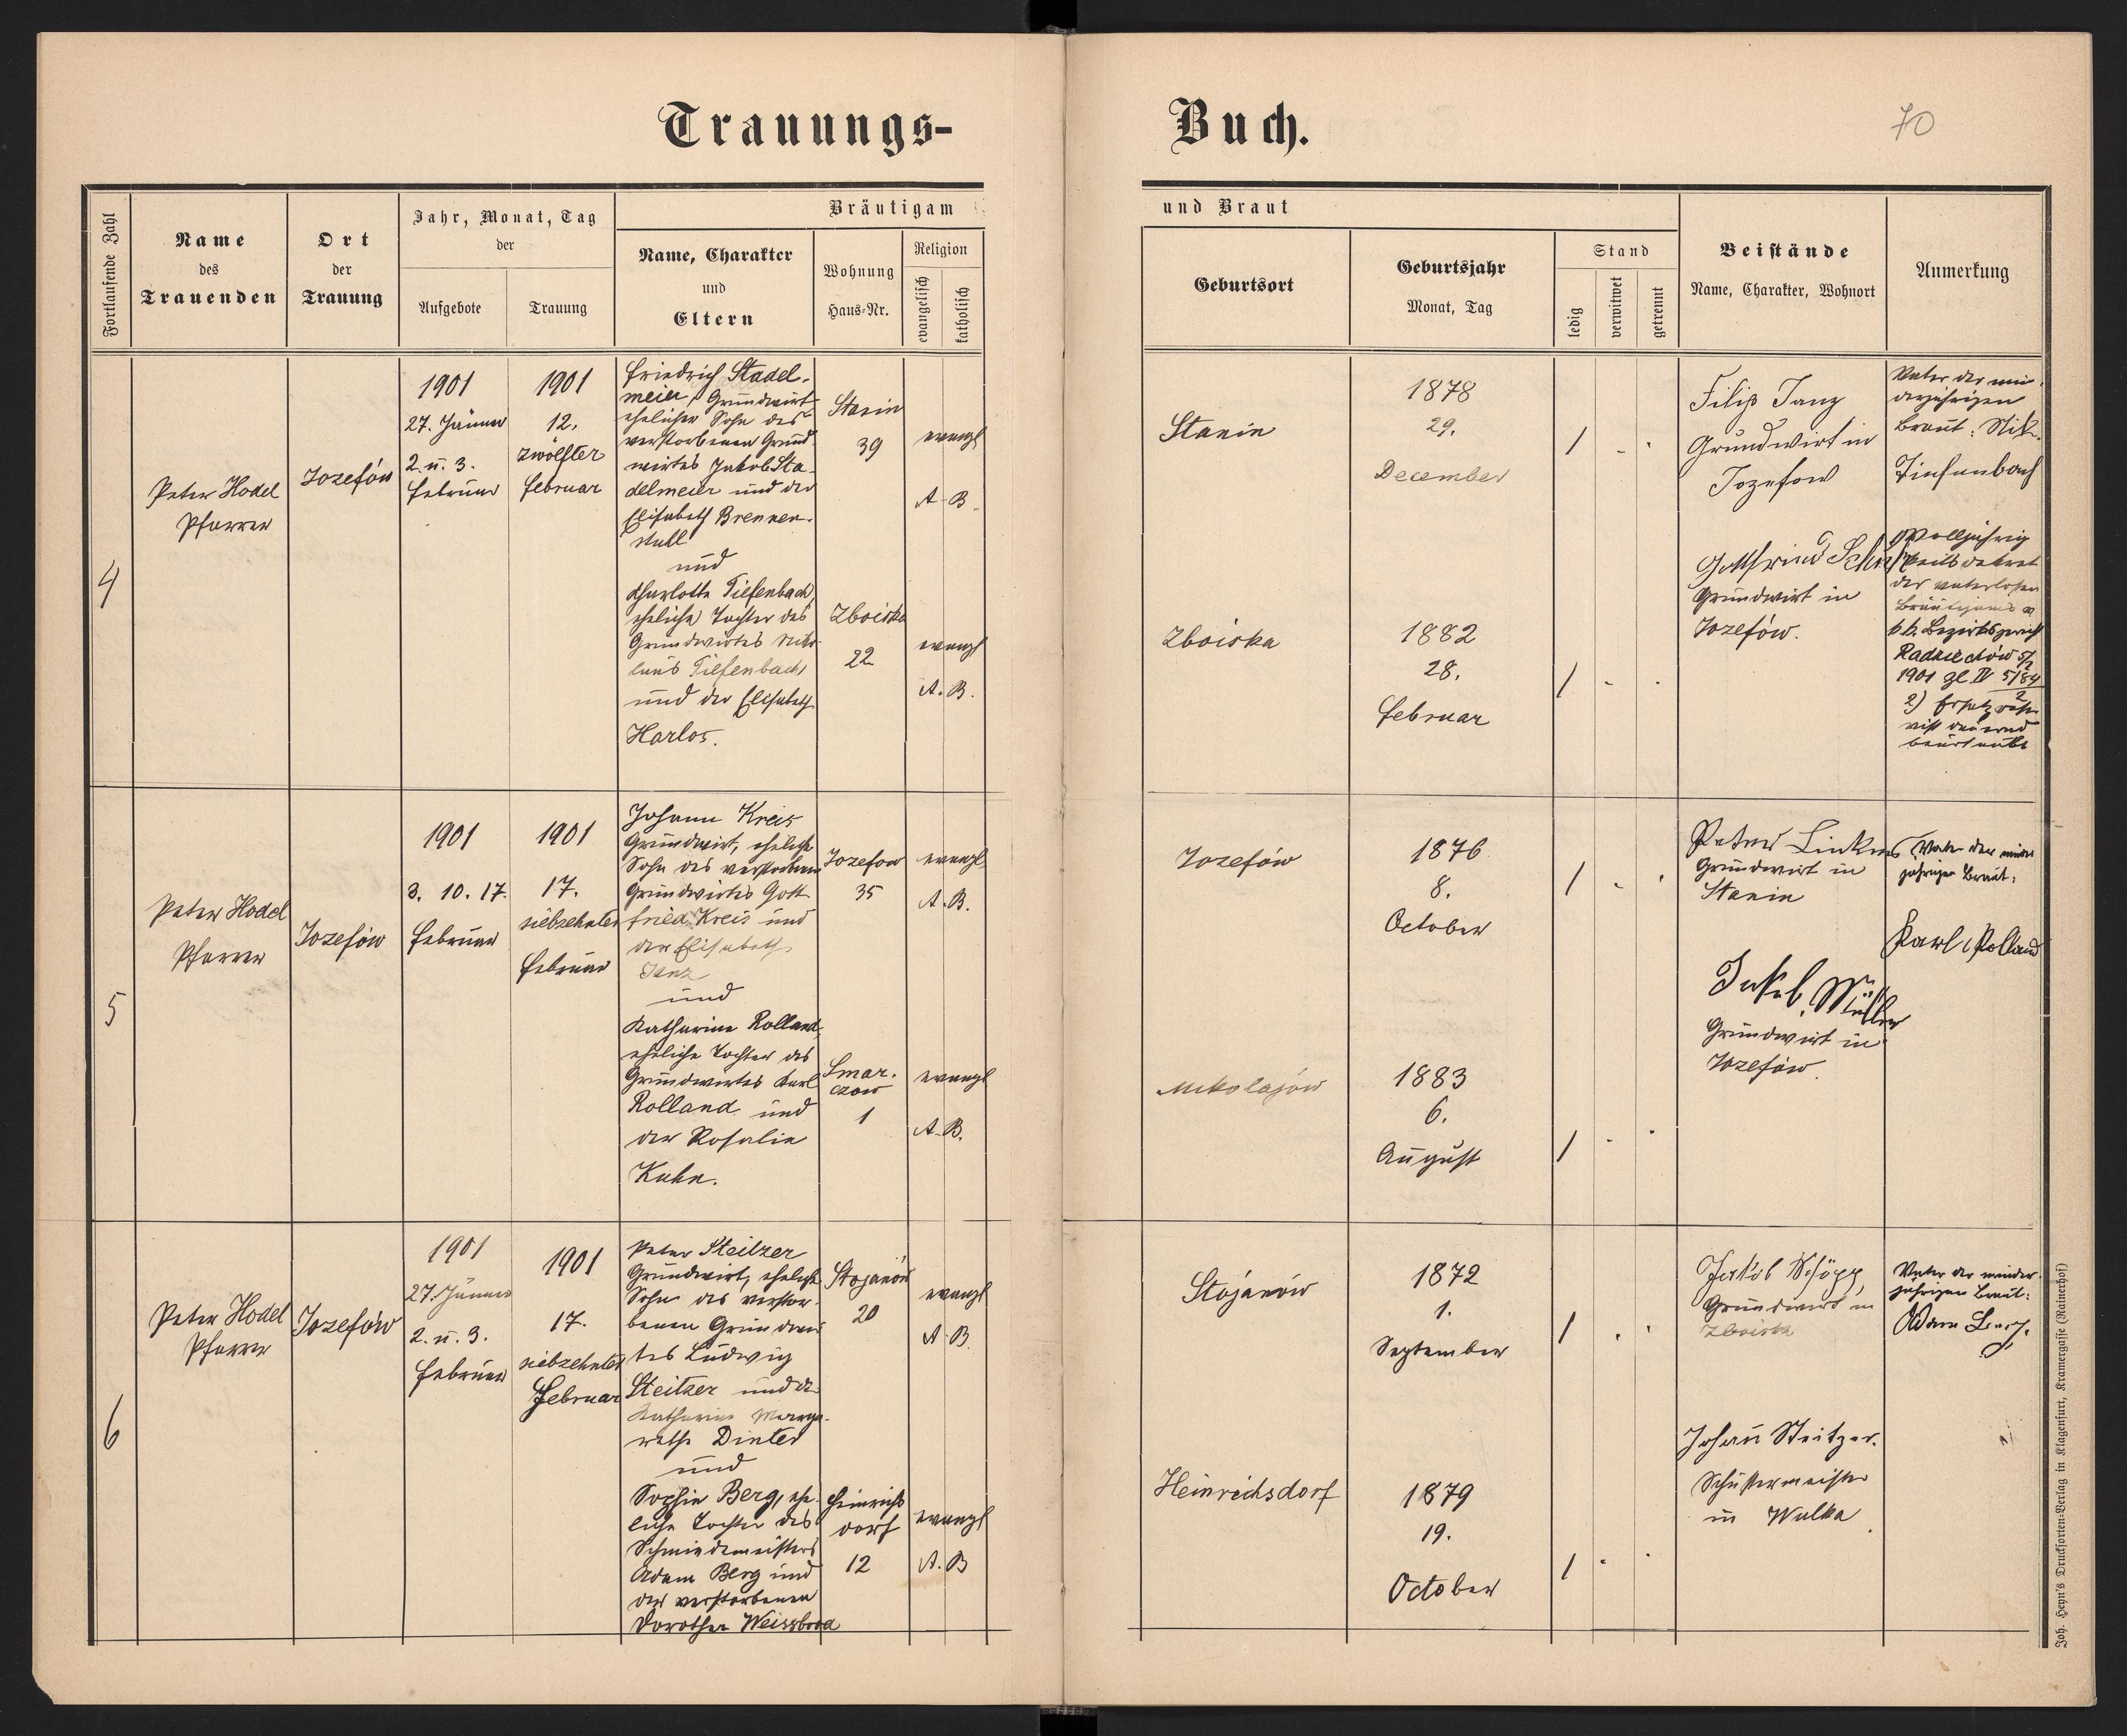 Trauungs-
Buch.
70
Fortlaufende Zahl
Name
des
Trauenden
Ort
der
Trauung
Jahr, Monat, Tag
der
Aufgebote
Trauung
Bräutigam
Name, Charakter
und
Eltern
Wohnung
Haus-Nr.
Religion
evangelisch
katholisch
und Braut
Geburtsort
Geburtsjahr
Monat, Tag
Stand
ledig
verwitwet
getrennt
Beistände
Name, Charakter, Wohnort
Anmerkung
4
Peter Hodel
Pfarrer
Jozefów
1901
27. Jänner
2. u. 3.
Februar
1901
12.
zwölfter
Februar
Friedrich Stadel-
meier, Grundwirt
ehelicher Sohn des
verstorbenen Grund
wirtes Jakob Sta-
delmeier und der
Elisabeth Brennen-
stuhl
und
Charlotte Tiefenbach,
eheliche Tochter des
Grundwirtes Niko
laus Tiefenbach
und der Elisabeth
Harlos.
Stanin
39
evangl
A. B.
Zboiska
22
evangl
A. B.
Stanin
1878
29.
December
/ - -
Zboiska
1882
28.
Februar
/ - -
Filip Janz
Grundwirt in
Jozefow
Gottfried
Grundwirt in
Jozefów.
Vater der min-
derjährigen
Braut: Nik.
Tiefenbach
der vaterlosen
Bräutigams
k. k. Bezirksgericht
Radziechów 5/2
1901
2)
5
Peter Hodel
Pfarrer
Jozefów
1901
3. 10. 17.
Februar
1901
17.
siebzehnter
Februar
Johann Kreis
Grundwirt, ehelicher
Sohn des verstorbenen
Grundwirtes Gott-
fried Kreis und
der Elisabeth
Janz
und
Katharina Rolland,
eheliche Tochter des
Grundwirtes Karl
Rolland und
der Rosalie
Kuhn.
Jozefow
35
evangl
A. B.
Smar-
czow
1
evangl
A. B.
Jozefów
1876
8.
October
/ - -
Mikolajów
1883
6.
August
/ - -
Peter
Grundwirt in
Stanin
Jakob Müller
Grundwirt in
Jozefów.
Vater der minder
jährigen Braut:
Karl Rolland
6
Peter Hodel
Pfarrer
Jozefów
1901
27. Jänner
2. u. 3.
Februar
1901
17.
siebzehnter
Februar
Peter Steitzer
Grundwirt, ehelicher
Sohn des verstor-
benen Grundwir
tes Ludwig
Steitzer und der
Katharina Marga-
rethe Dinter
und
Sophie Berg, ehe-
liche Tochter des
Schmiedemeisters
Adam Berg und
der verstorbenen
Dorothea Weissbrod
Stojanów
20
evangl
A. B.
Heinrichs
dorf
12
evangl
A. B
Stojanów
1872
1.
September
/ - -
Heinrichsdorf
1879
19.
October
/ - -
Jakob Schöpp,
Grundwirt in
Zboiska
Johann Steitzer.
Schustermeister
in Wulka
Vater der minder-
jährigen Braut:
Adam Berg.
Joh. Heyn's Drucksorten-Verlag in Klagenfurt, Kramergasse (Rainerhof)